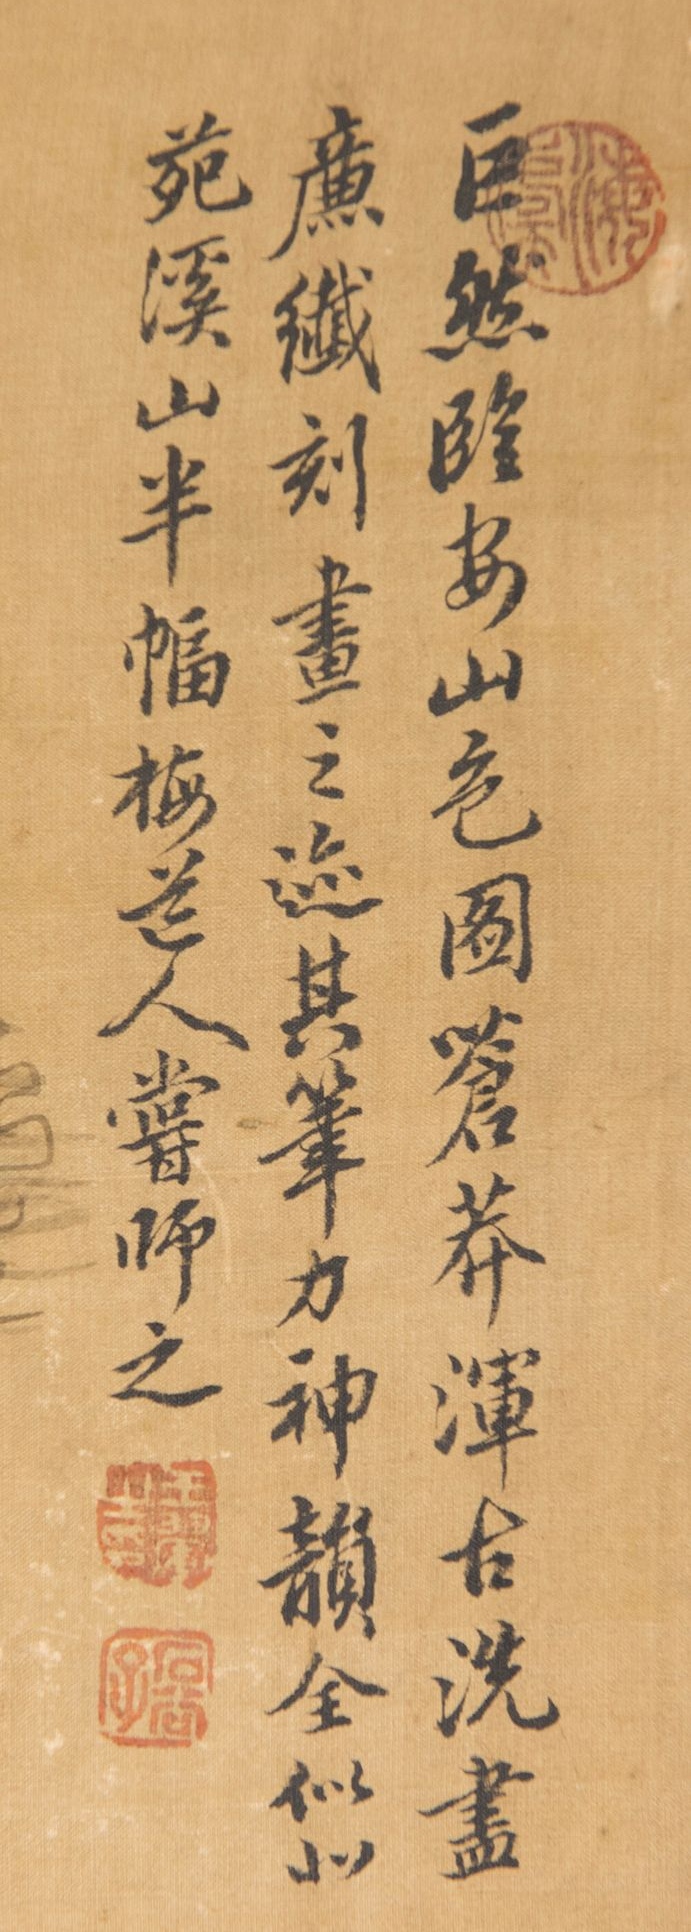 巨然臨安山色圖蒼莽渾古洗盡
廉纖刻畫之迹其筆力神韻全似北
苑溪山半幅梅道人嘗師之